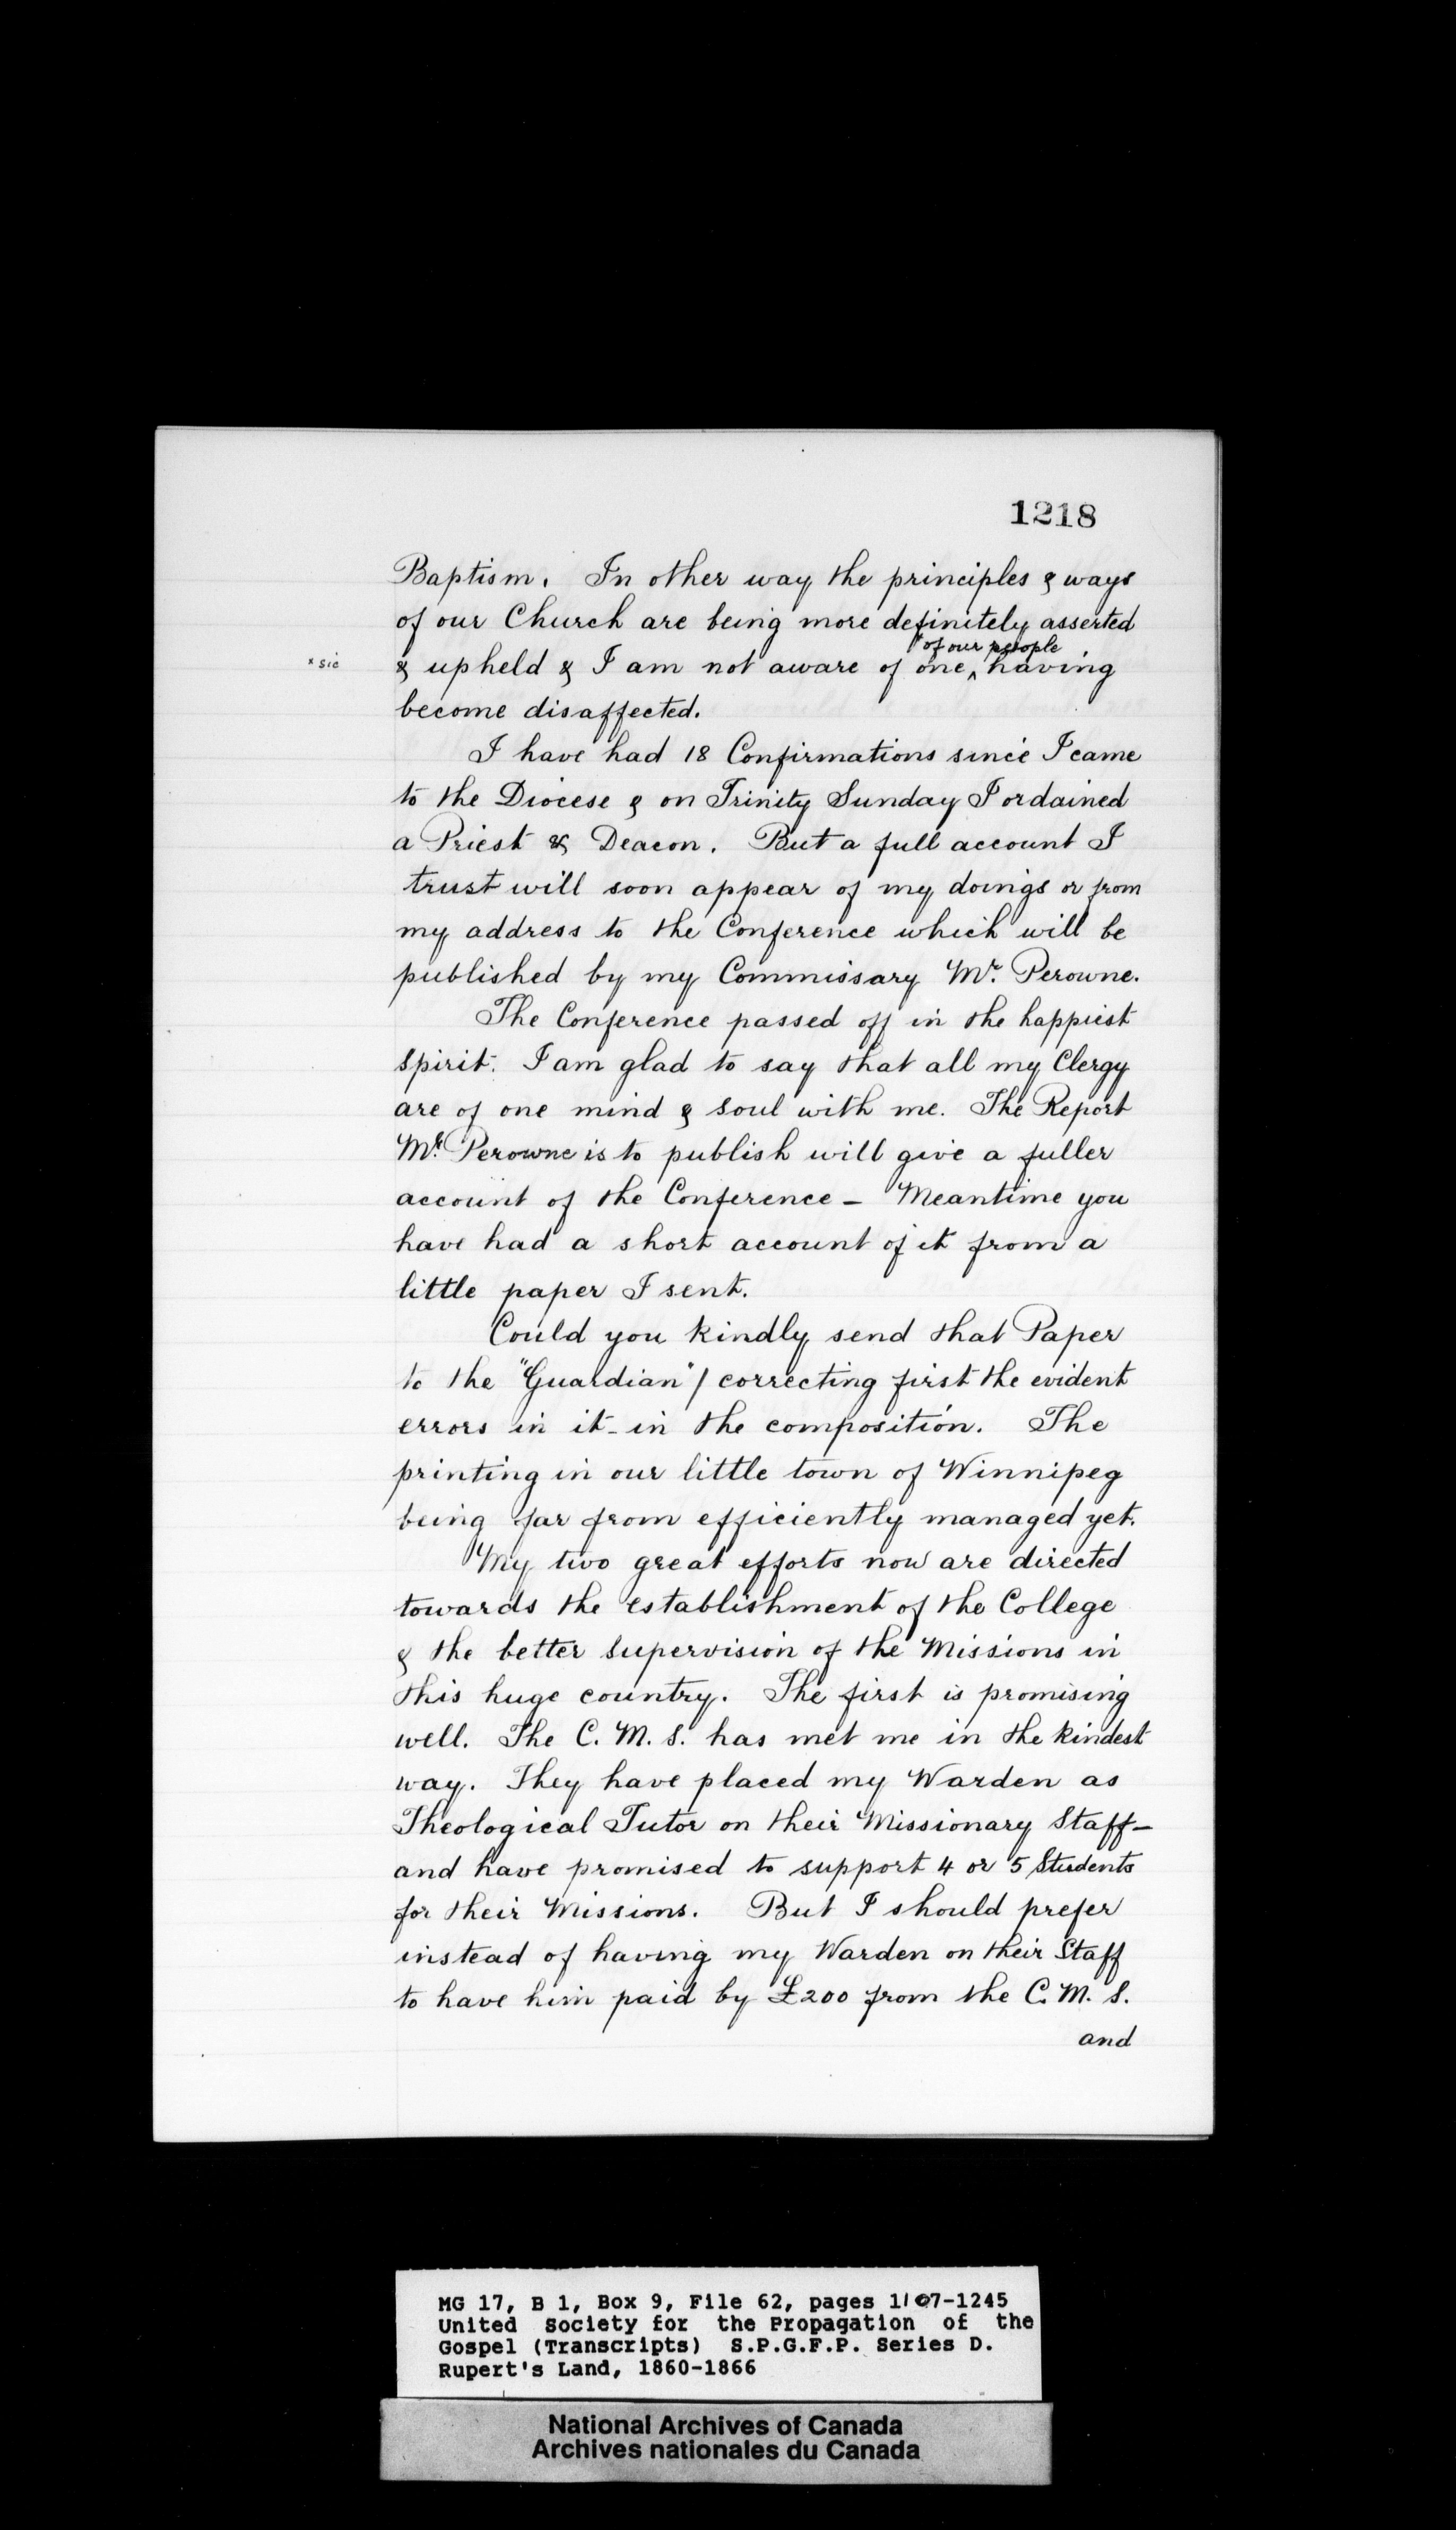 1218
Baptism. In other way the principles & ways
of our Church are being more definitely asserted
x of our people
x sic
& upheld & I am not aware of one ‸ having
become disaffected.
I have had 18 Confirmations since I came
to the Diocese & on Trinity Sunday I ordained
a Priest & Deacon. But a full account I
trust will soon appear of my doings or from
my address to the Conference which will be
published by my Commissary Mr. Perowne.
The Conference passed off in the happiest
spirit. I am glad to say that all my Clergy
are of one mind & soul with me. The Report
Mr. Perowne is to publish will give a fuller
account of the Conference – Meantime you
have had a short account of it from a
little paper I sent.
Could you kindly send that Paper
to the "Guardian" / correcting first the evident
errors in it - in the composition. The
printing in our little town of Winnipeg
being far from efficiently managed yet.
My two great efforts now are directed
towards the establishment of the College
& the better supervision of the Missions in
this huge country. The first is promising
well. The C. M. S. has met me in the kindest
way. They have placed my Warden as
Theological Tutor on their Missionary Staff –
and have promised to support 4 or 5 Students
for their Missions. But I should prefer
instead of having my Warden on their Staff
to have him paid by £200 from the C. M. S.
and
MG 17, B 1, Box 9, File 62, pages 1107-1245
United Society for the Propagation of the
Gospel (Transcripts) S.P.G.F.P. Series D.
Rupert's Land, 1860-1866
National Archives of Canada
Archives nationales du Canada